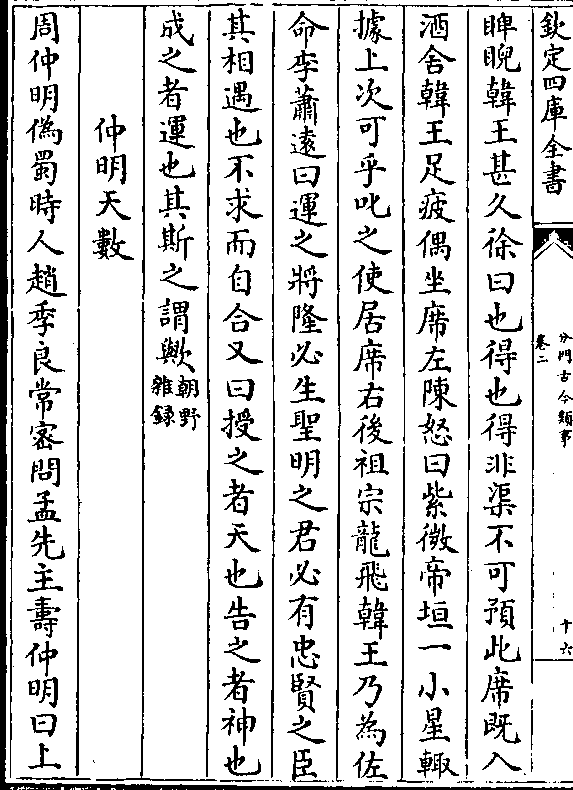 欽定四庫全書
分門古今類事
卷二
十六
睥睨韓王甚久徐曰也得也得非渠不可預此席既入
酒舍韓王足疲偶坐席左陳怒曰紫微帝垣一小星輙
據上次可乎叱之使居席右後祖宗龍飛韓王乃為佐
命李蕭逺曰運之將隆必生聖明之君必有忠賢之臣
其相遇也不求而自合又曰授之者天也告之者神也
成之者運也其斯之謂歟朝野
雜録
仲明天數
周仲明偽蜀時人趙季良常密問孟先主壽仲明曰上